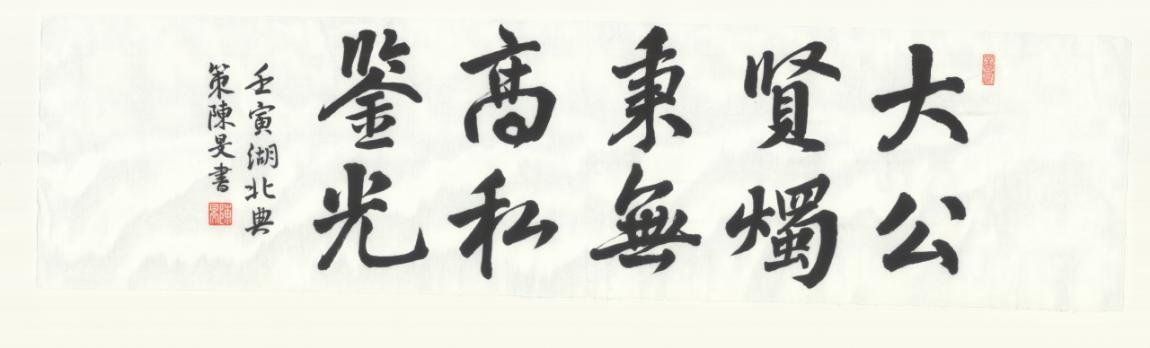 大賢秉髙鑒
公燭無私光
壬寅湖北典
策陳旻書